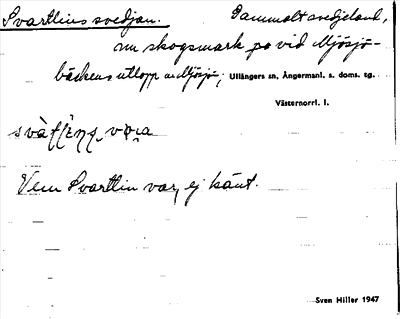 Svartlins svedjan. Gammalt svedjeland,
nu skogsmark på vid Mjösjö-
bäckens utlopp ur Mjösjö; Ullångers sn, Ångermanl. s. doms. tg.
Västernorrl. l.
Vem Svartlin var, ej känt.
Sven Hiller 1947